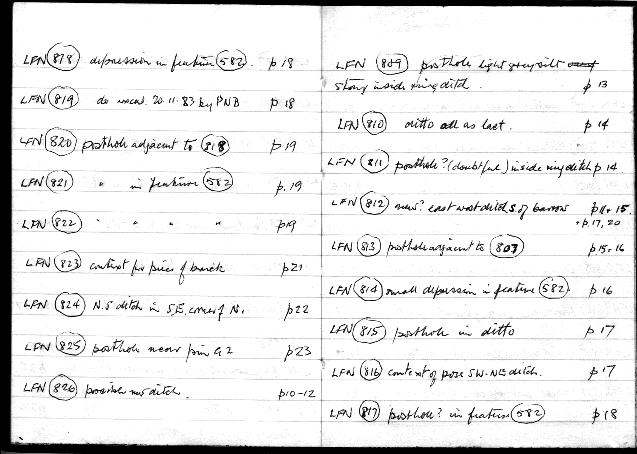 LFN 878 depression in feature 582. p 18
LFN 819 do excav. 20.11.83 by PNB p 18
LFN 820 posthole adjacent to 818 p 19
LFN 821 " in feature 582 p. 19
LFN 822 " " " " p19
LFN 823 context for piece of brick p21
LFN 824 N.S ditch in S.E. corner of N. p22
LFN 825 posthole near pin G2 p23
LFN 826 possible new ditch. p10-12
LFN 809 posthole light grey silt
stony inside ring ditch. p 13
LFN 810 ditto all as last. p 14
LFN 811 posthole? (doubtful) inside ring ditch p 14
LFN 812 new? east west ditch S. of barrow p 11 + 15.
+ p. 17, 20
LFN 813 posthole adjacent to 807 p 15-16
LFN 814 small depression in feature 582. p 16
LFN 815 posthole in ditto p 17
LFN 816 context of poss SW-NE ditch. p 17
LFN 817 posthole? in feature 582 p 18